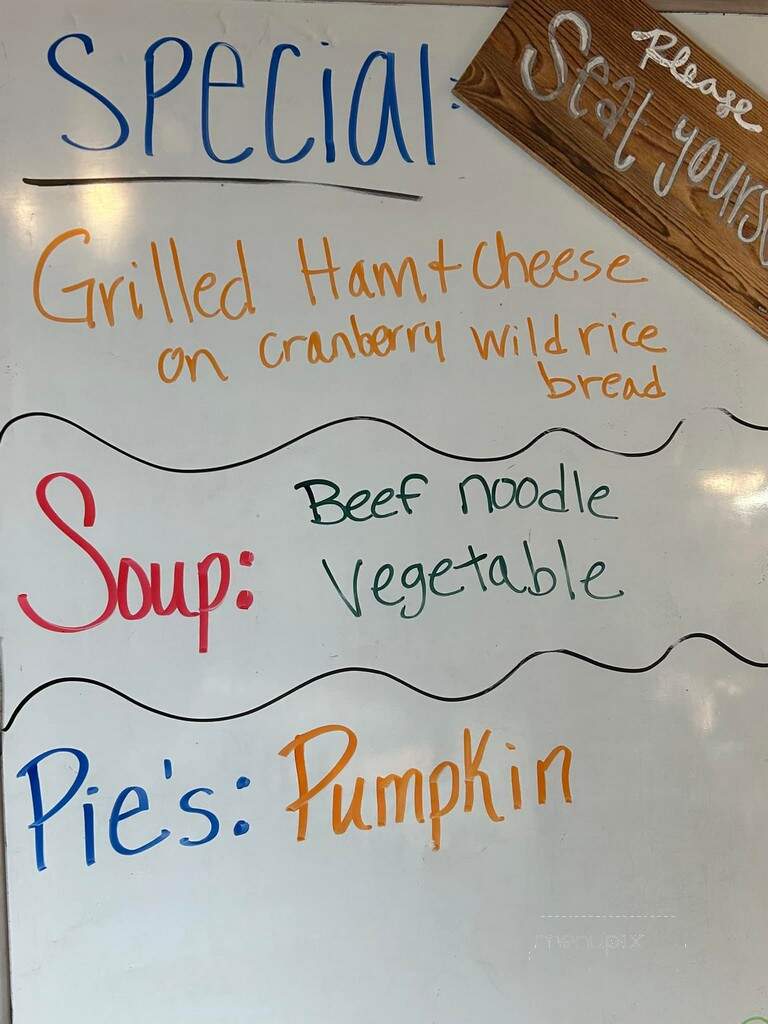 Special:
Please
Seat yourse
Grilled Ham + Cheese
on cranberry wild rice
bread
Soup: Beef noodle
Vegetable
Pie's: Pumpkin
menupix